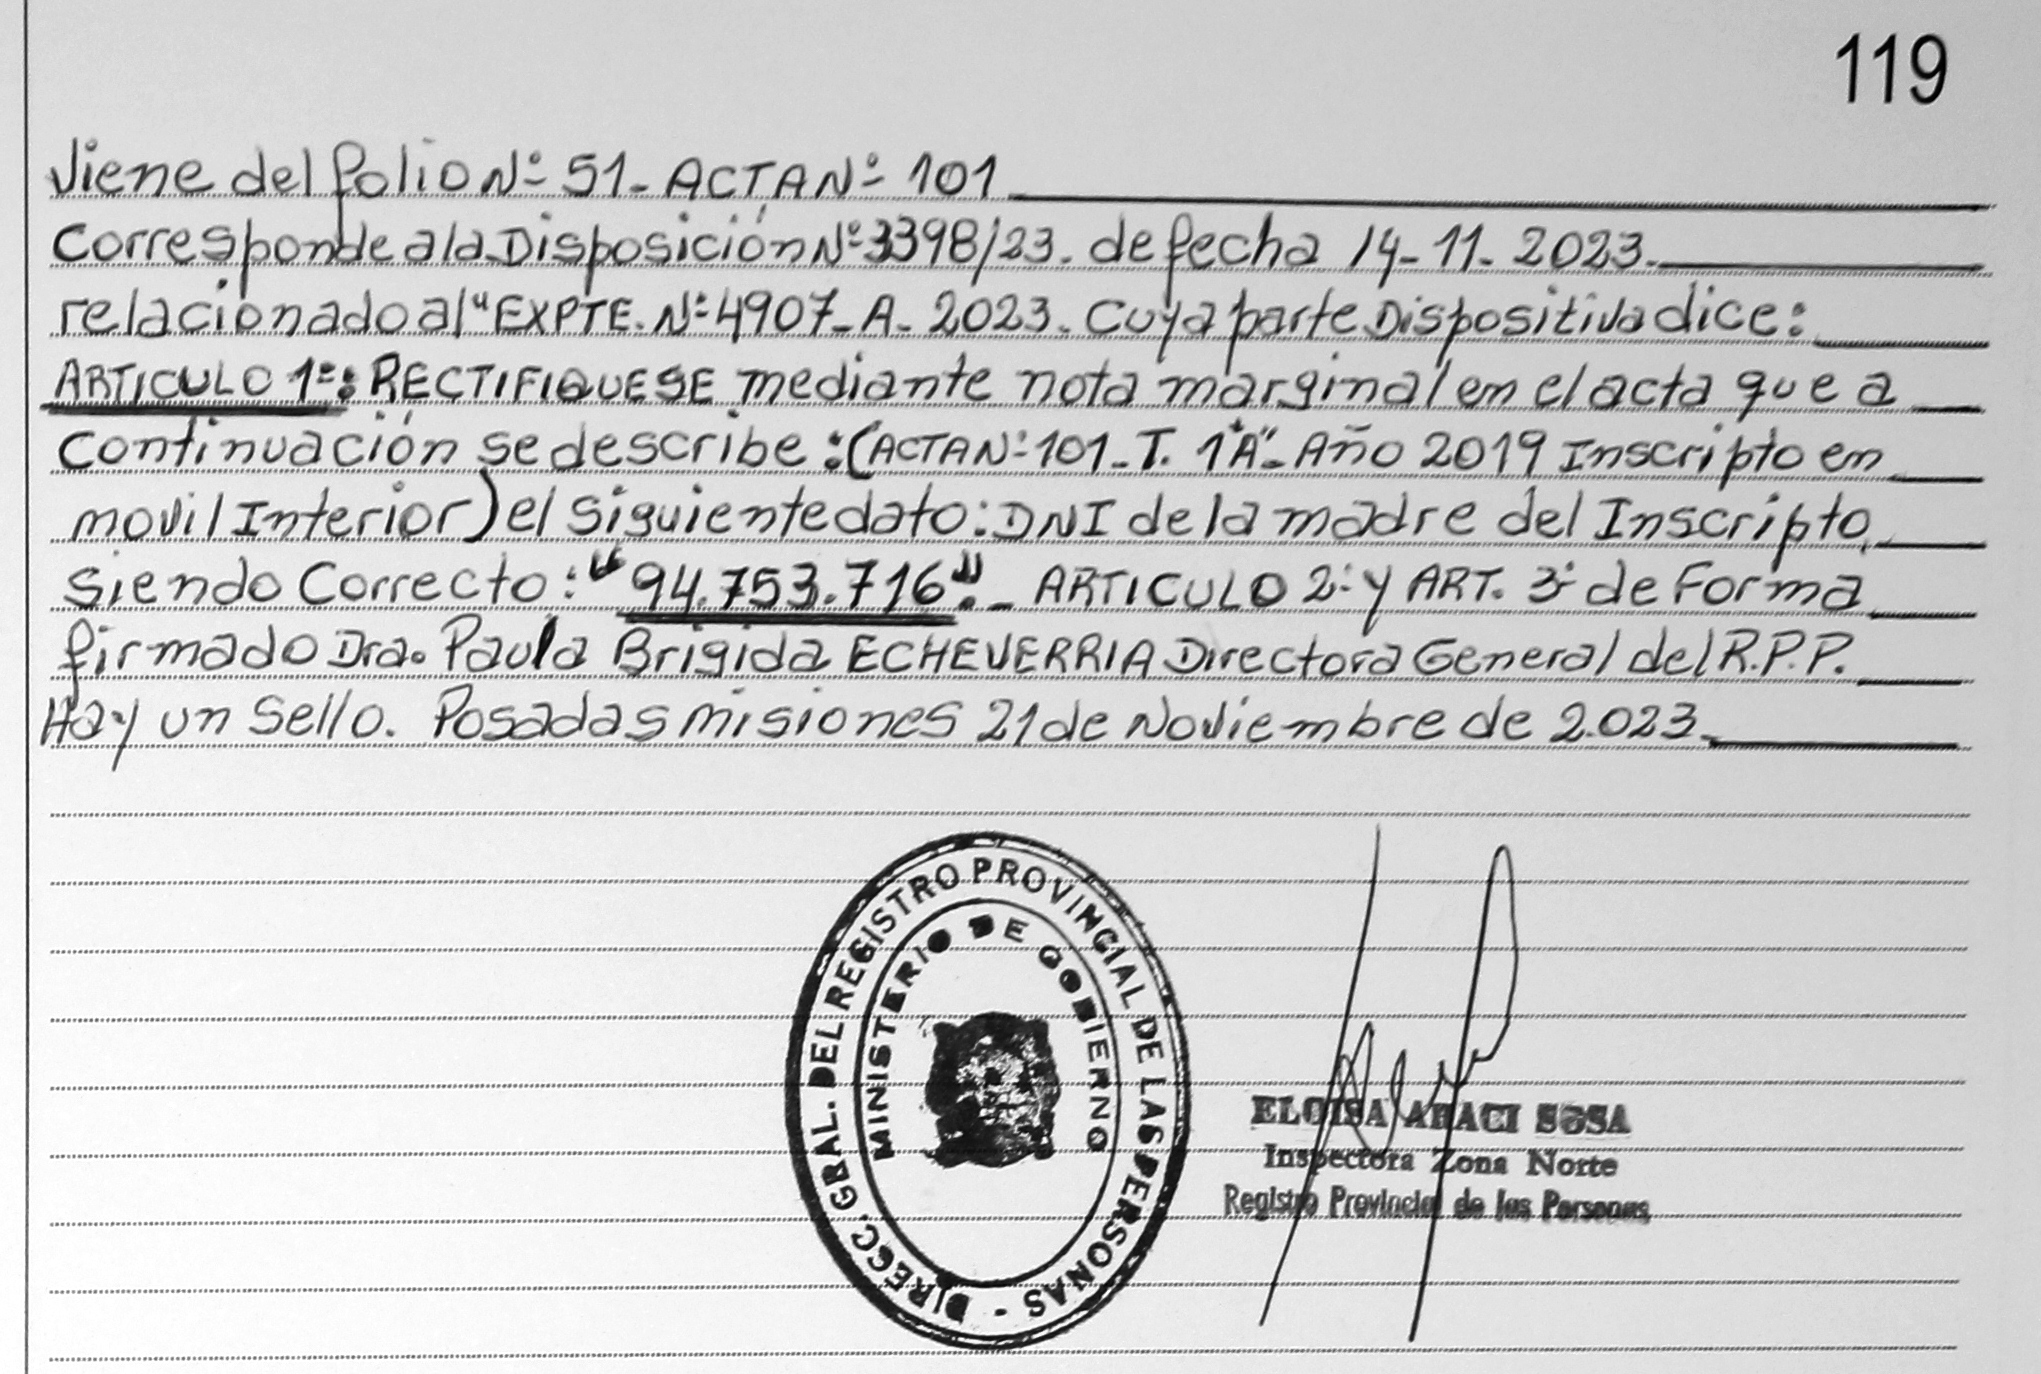 119
Viene del folio Nº 51_ ACTA Nº 101
Corresponde a la Disposición Nº 3398/23. de fecha 14-11-2023.
relacionado al "EXPTE. Nº 4907_A_2023. Cuya parte Dispositiva dice:
ARTICULO 1º: RECTIFIQUESE mediante nota marginal en el acta que a
Continuación se describe: (ACTA Nº 101_T. 1"A"_ Año 2019 Inscripto en
movil Interior) el siguiente dato: DNI de la madre del Inscripto,
Siendo Correcto: "94.753.716"._ ARTICULO 2º y ART. 3º de Forma
firmado Dra. Paula Brigida ECHEVERRIA Directora General del R.P.P.
Hay un Sello. Posadas misiones 21 de Noviembre de 2.023_
DIRECC. GRAL. DEL REGISTRO PROVINCIAL DE LAS PERSONAS -
MINISTERIO DE GOBIERNO
ELOISA ARACI SOSA
Inspectora Zona Norte
Registro Provincial de las Personas